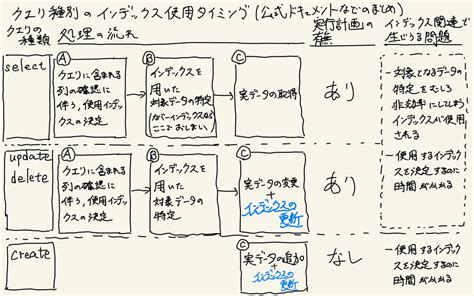 クエリ種別のインデックス使用タイミング(公式ドキュメントなどのまとめ)
クエリの
種類
処理の流れ
実行計画の
有無
インデックス関連で
生じうる問題
select
A
クエリに含まれる
列の確認に
伴う、使用インデッ
クスの決定
B
インデックスを
用いた
対象データの特定
(カバーインデックスなら
ここでおしまい)
C
実データの取得
あり
- 対象となるデータ
の特定をむしろ
非効率にしてしまう
インデックスが使用
される
- 使用するインデッ
クスを決定するのに
時間がかかる
update
delete
A
クエリに含まれる
列の確認に
伴う、使用インデッ
クスの決定
B
インデックスを
用いた
対象データの
特定
C
実データの変更
+
インデックスの
更新
あり
create
C
実データの追加
+
インデックスの
更新
なし
- 使用するインデッ
クスを決定するのに
時間がかかる